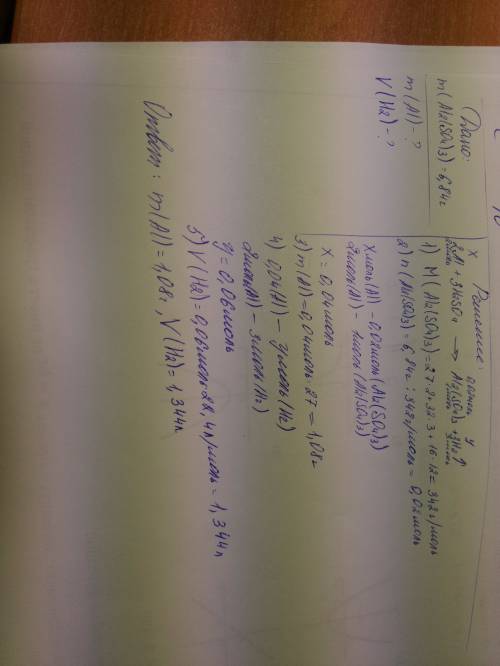 Дано:
m(Al2(SO4)3)=6,84г
m(Al)-?
V(H2)-?
Решение:
X 0,02моль y
2Al + 3H2SO4 → Al2(SO4)3 + 3H2↑
2моль 1моль 3моль
1) M(Al2(SO4)3)=27·2+32·3+16·12=342г/моль
2) n(Al2(SO4)3)=6,84г:342г/моль=0,02моль
Xмоль(Al) - 0,02моль(Al2(SO4)3)
2моль(Al) - 1моль(Al2(SO4)3)
X=0,04моль
3) m(Al)=0,04моль·27=1,08г
4) 0,04(Al) - yмоль(H2)
2моль(Al) - 3моль(H2)
y=0,06моль
5) V(H2)=0,06моль·22,4л/моль=1,344л
Ответ: m(Al)=1,08г, V(H2)=1,344л